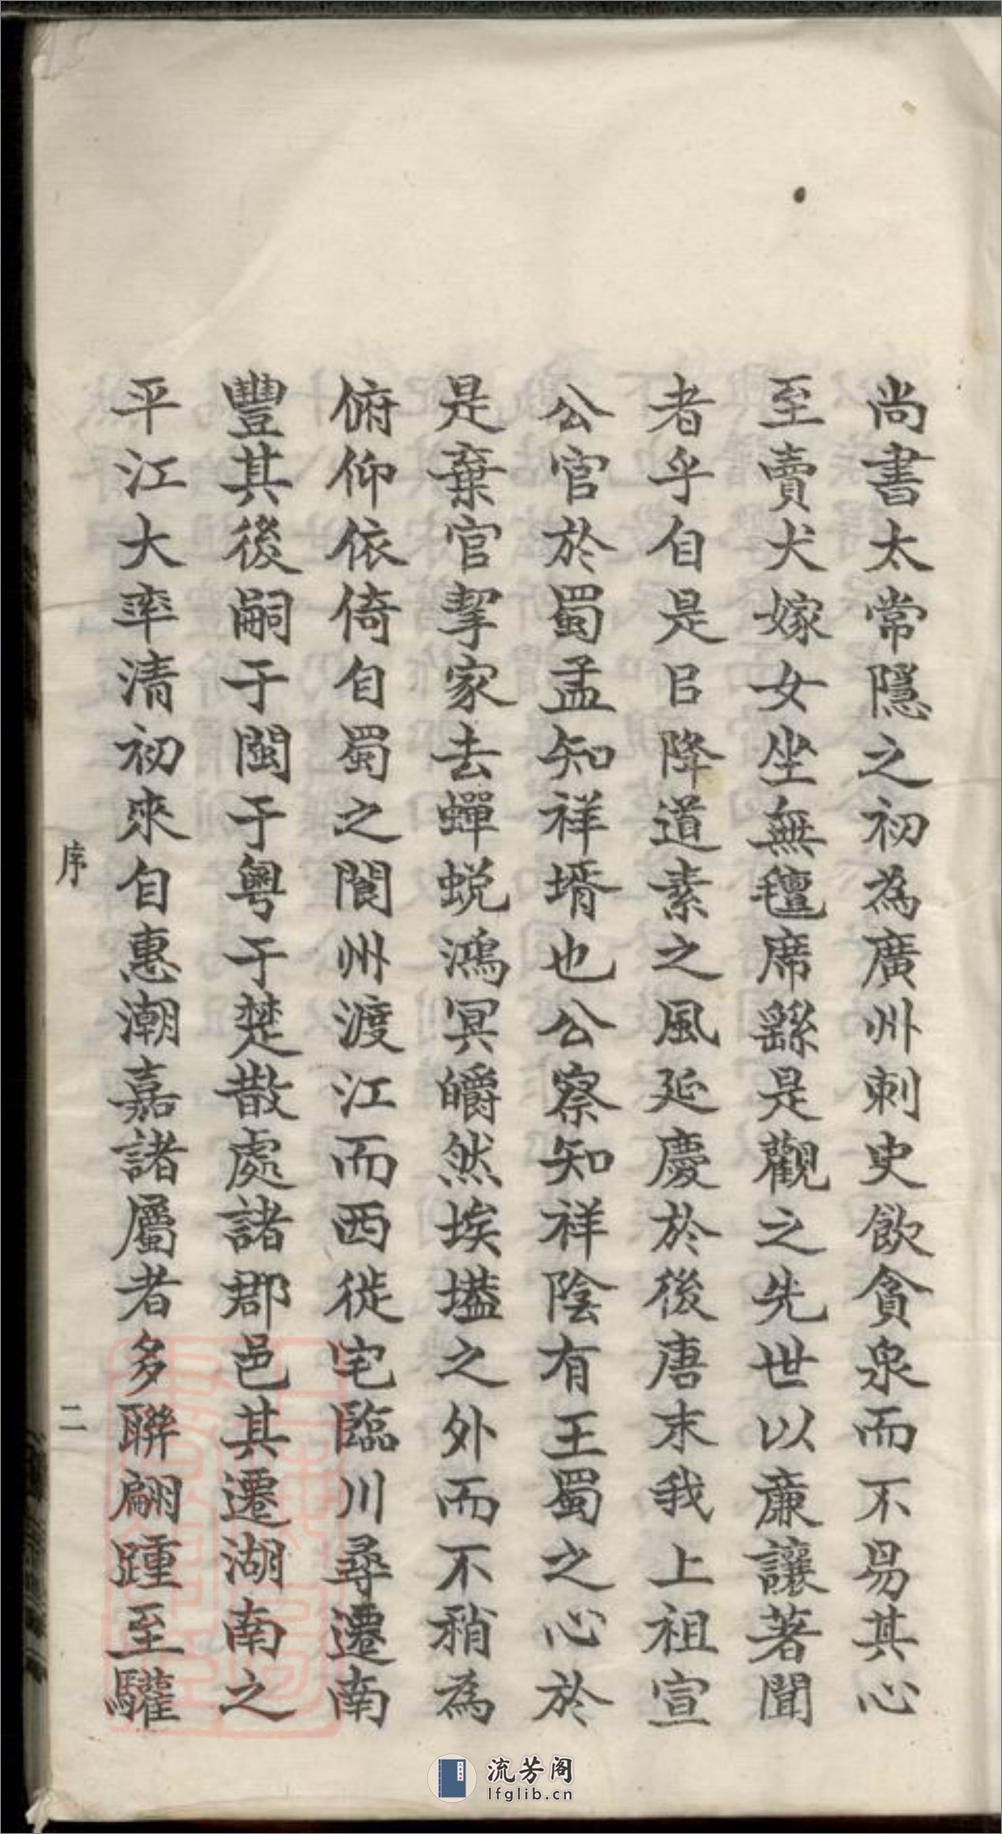 尚書太常隱之初為廣州刺史飲貪泉而不易其心
至賣犬嫁女坐無氊席繇是觀之先世以亷讓著聞
者乎自是㠯降道素之風延慶於後唐末我上祖宣
公官於蜀孟知祥壻也公察知祥陰有王蜀之心於
是棄官挈家去蟬蛻鴻冥皭然埃壒之外而不稍為
俯仰依倚自蜀之閬州渡江而西徙宅臨川尋遷南
豐其後嗣于閩于粤于楚散處諸郡邑其遷湖南之
平江大率清初來自惠潮嘉諸屬者多聯翩踵至驩
序
二
流芳阁
lfglib.cn